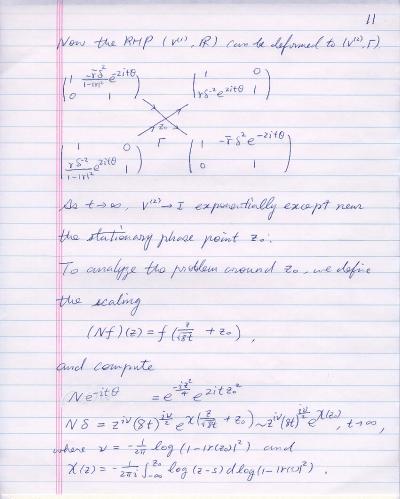 11
Now the RHP (V⁽¹⁾, ℝ) can be deformed to (V⁽²⁾, Γ).
( 1  -r̄δ²/(1-|r|²) e^{-2itθ} ; 0  1 )   ( 1  0 ; rδ⁻²e^{2itθ}  1 )
z₀
Γ
( 1  0 ; rδ⁻²/(1-|r|²) e^{2itθ}  1 )   ( 1  -r̄δ²e^{-2itθ} ; 0  1 )
As t→∞, V⁽²⁾→I exponentially except near
the stationary phase point z₀.
To analyze the problem around z₀, we define
the scaling
(Nf)(z) = f(z/√8t + z₀),
and compute
N e^{-itθ} = e^{-iz²/4} e^{2itz₀²}
Nδ = z^{iν}(8t)^{-iν/2} e^{χ(z/√8t + z₀)} ~ z^{iν}(8t)^{-iν/2} e^{χ(z₀)}, t→∞,
where ν = -1/2π log(1-|r(z₀)|²) and
χ(z) = -1/2πi ∫_{-∞}^{z₀} log(z-s) d log(1-|r(s)|²).